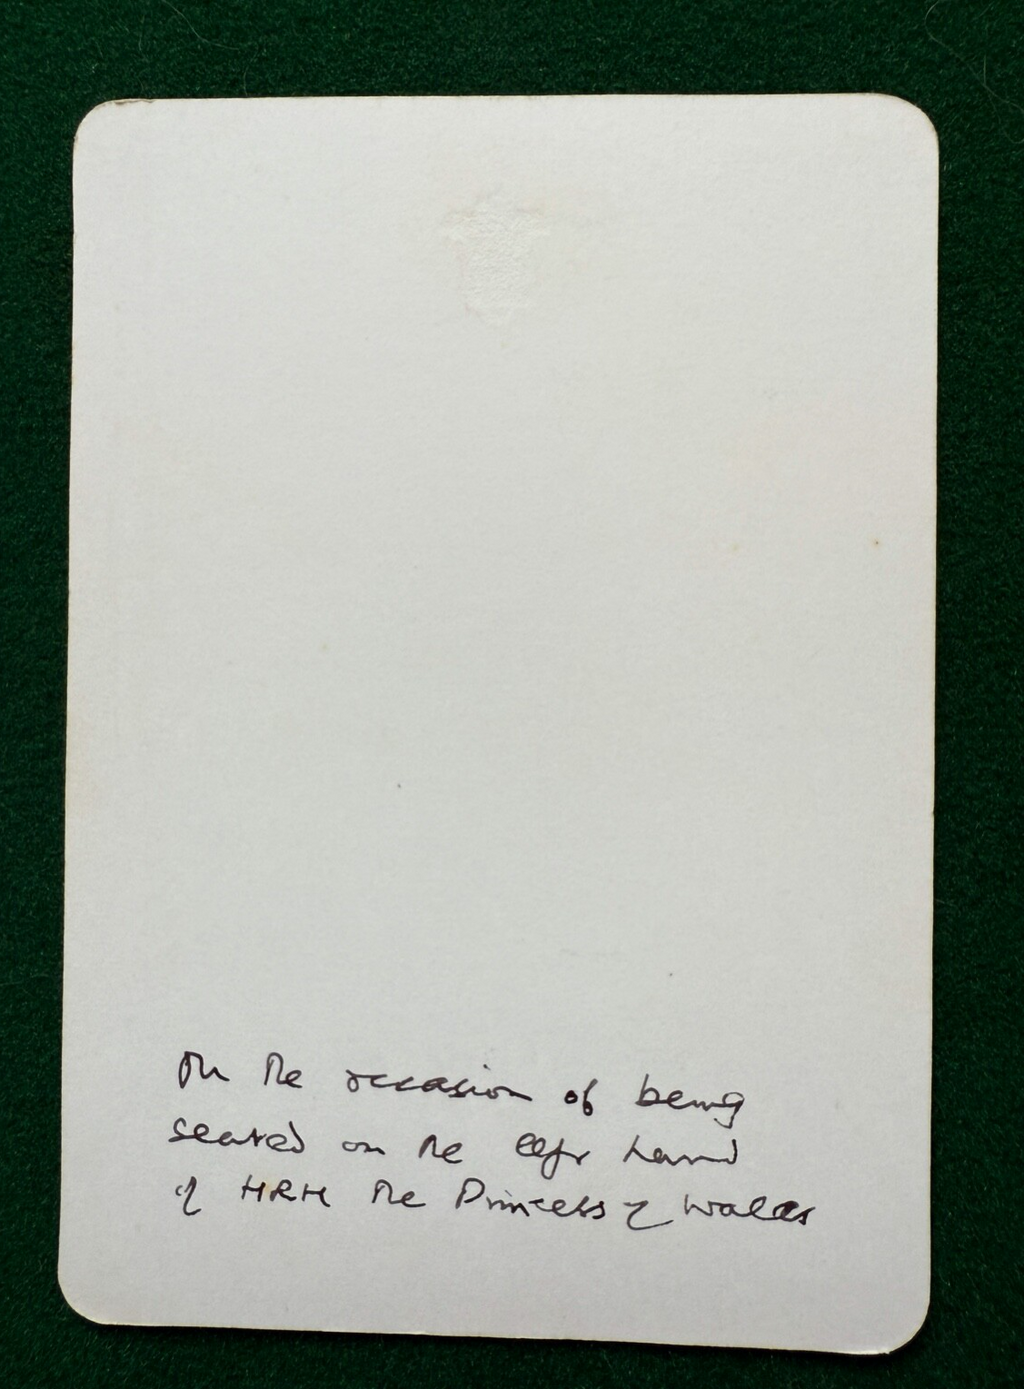 On the occasion of being
seated on the left hand
of HRH the Princess of Wales